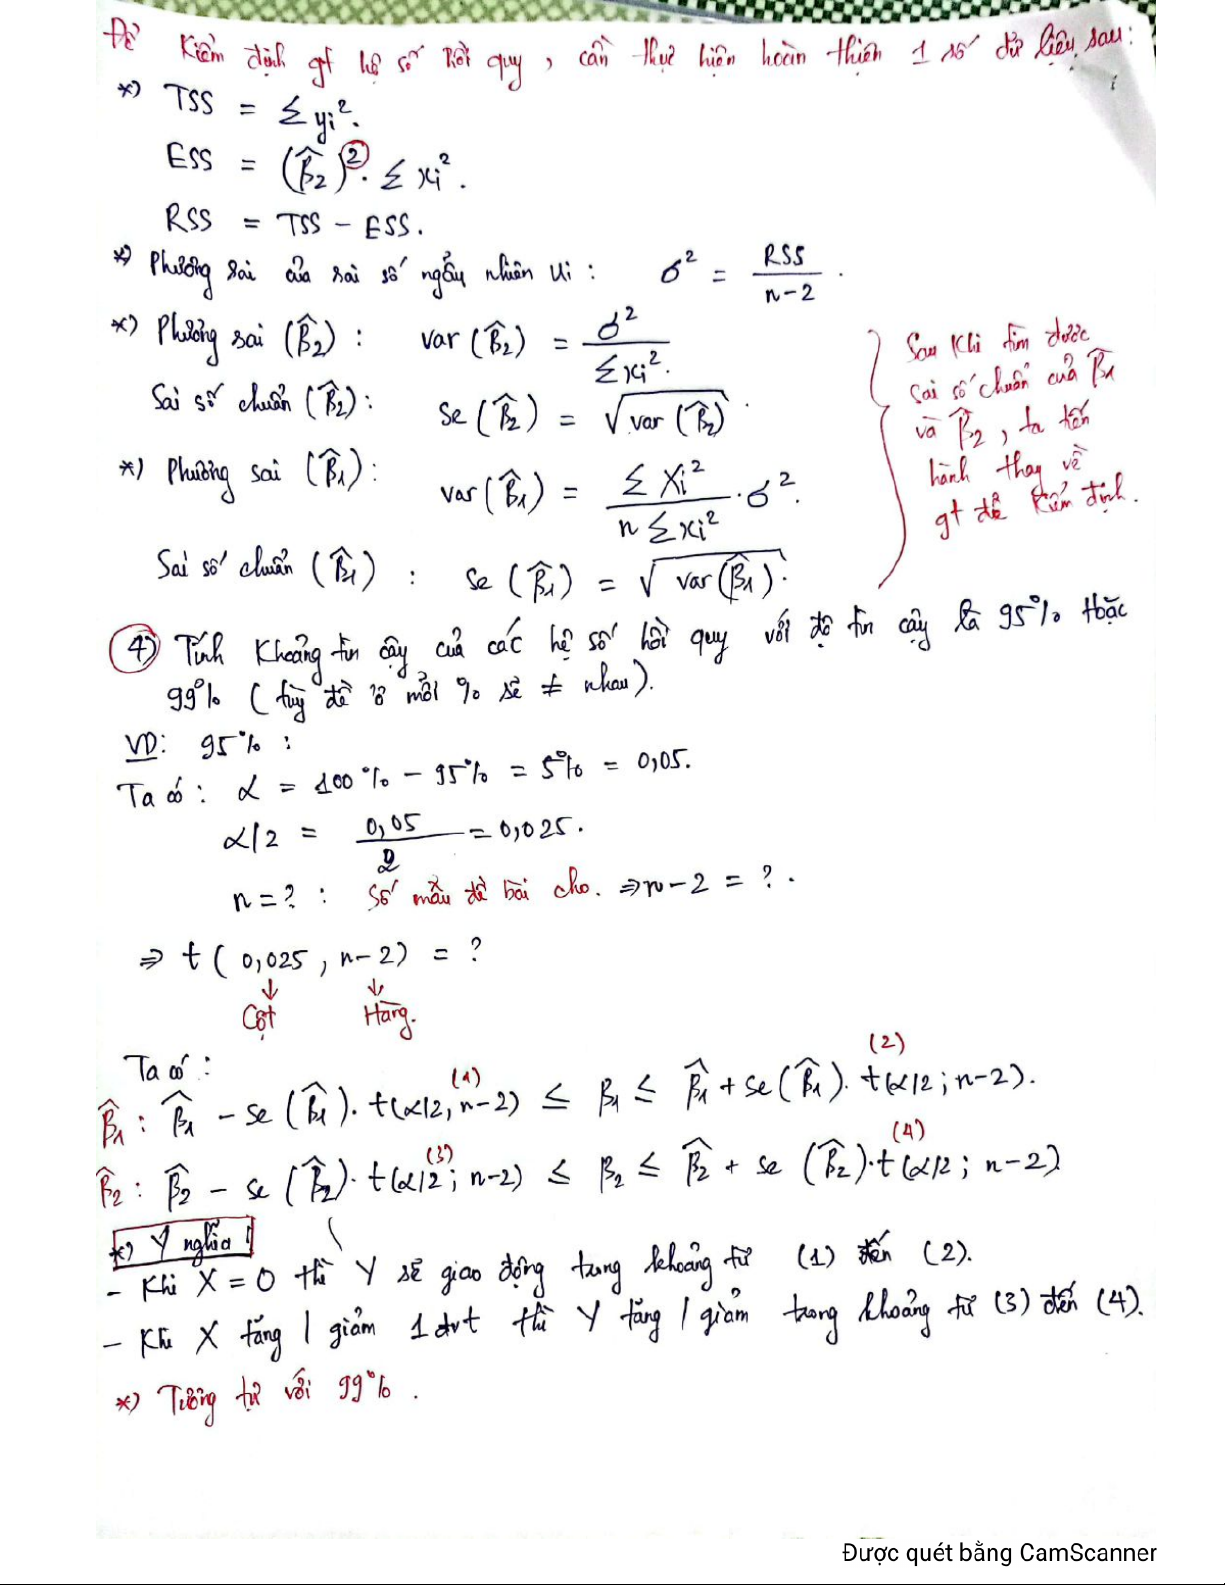 Để kiểm định gt hệ số hồi quy, cần thực hiện hoàn thiện 1 số dữ liệu sau:
*) TSS = Σyi².
ESS = (β̂₂)². Σxi².
RSS = TSS - ESS.
*) Phương sai của sai số ngẫu nhiên Ui : σ² = RSS / n-2 .
*) Phương sai (β̂₂) : var (β̂₂) = σ² / Σxi².
Sai số chuẩn (β̂₂) : se (β̂₂) = √var (β̂₂) .
*) Phương sai (β̂₁) : var (β̂₁) = ΣXi² / nΣxi² . σ².
Sai số chuẩn (β̂₁) : se (β̂₁) = √var (β̂₁) .
Sau khi tìm được
sai số chuẩn của β̂₁
và β̂₂, ta tiến
hành thay về
gt để kiểm định.
4) Tính khoảng tin cậy của các hệ số hồi quy với độ tin cậy là 95% hoặc
99% (tùy đề ở mỗi % sẽ ≠ nhau).
VD: 95% :
Ta có : α = 100% - 95% = 5% = 0,05.
α/2 = 0,05 / 2 = 0,025.
n = ? : Số mẫu đề bài cho. ⇒ n-2 = ? .
⇒ t ( 0,025 , n-2) = ?
↓ ↓
Cột Hàng.
Ta có :
(1) (2)
β̂₁ : β̂₁ - se (β̂₁). t(α/2, n-2) ≤ β₁ ≤ β̂₁ + se (β̂₁). t(α/2 ; n-2).
(3) (4)
β̂₂ : β̂₂ - se (β̂₂). t(α/2 ; n-2) ≤ β₂ ≤ β̂₂ + se (β̂₂). t(α/2 ; n-2)
*) Ý nghĩa !
- Khi X = 0 thì Y sẽ giao động trung khoảng từ (1) đến (2).
- Khi X tăng / giảm 1 đvt thì Y tăng / giảm trong khoảng từ (3) đến (4).
*) Tương tự với 99% .
Được quét bằng CamScanner